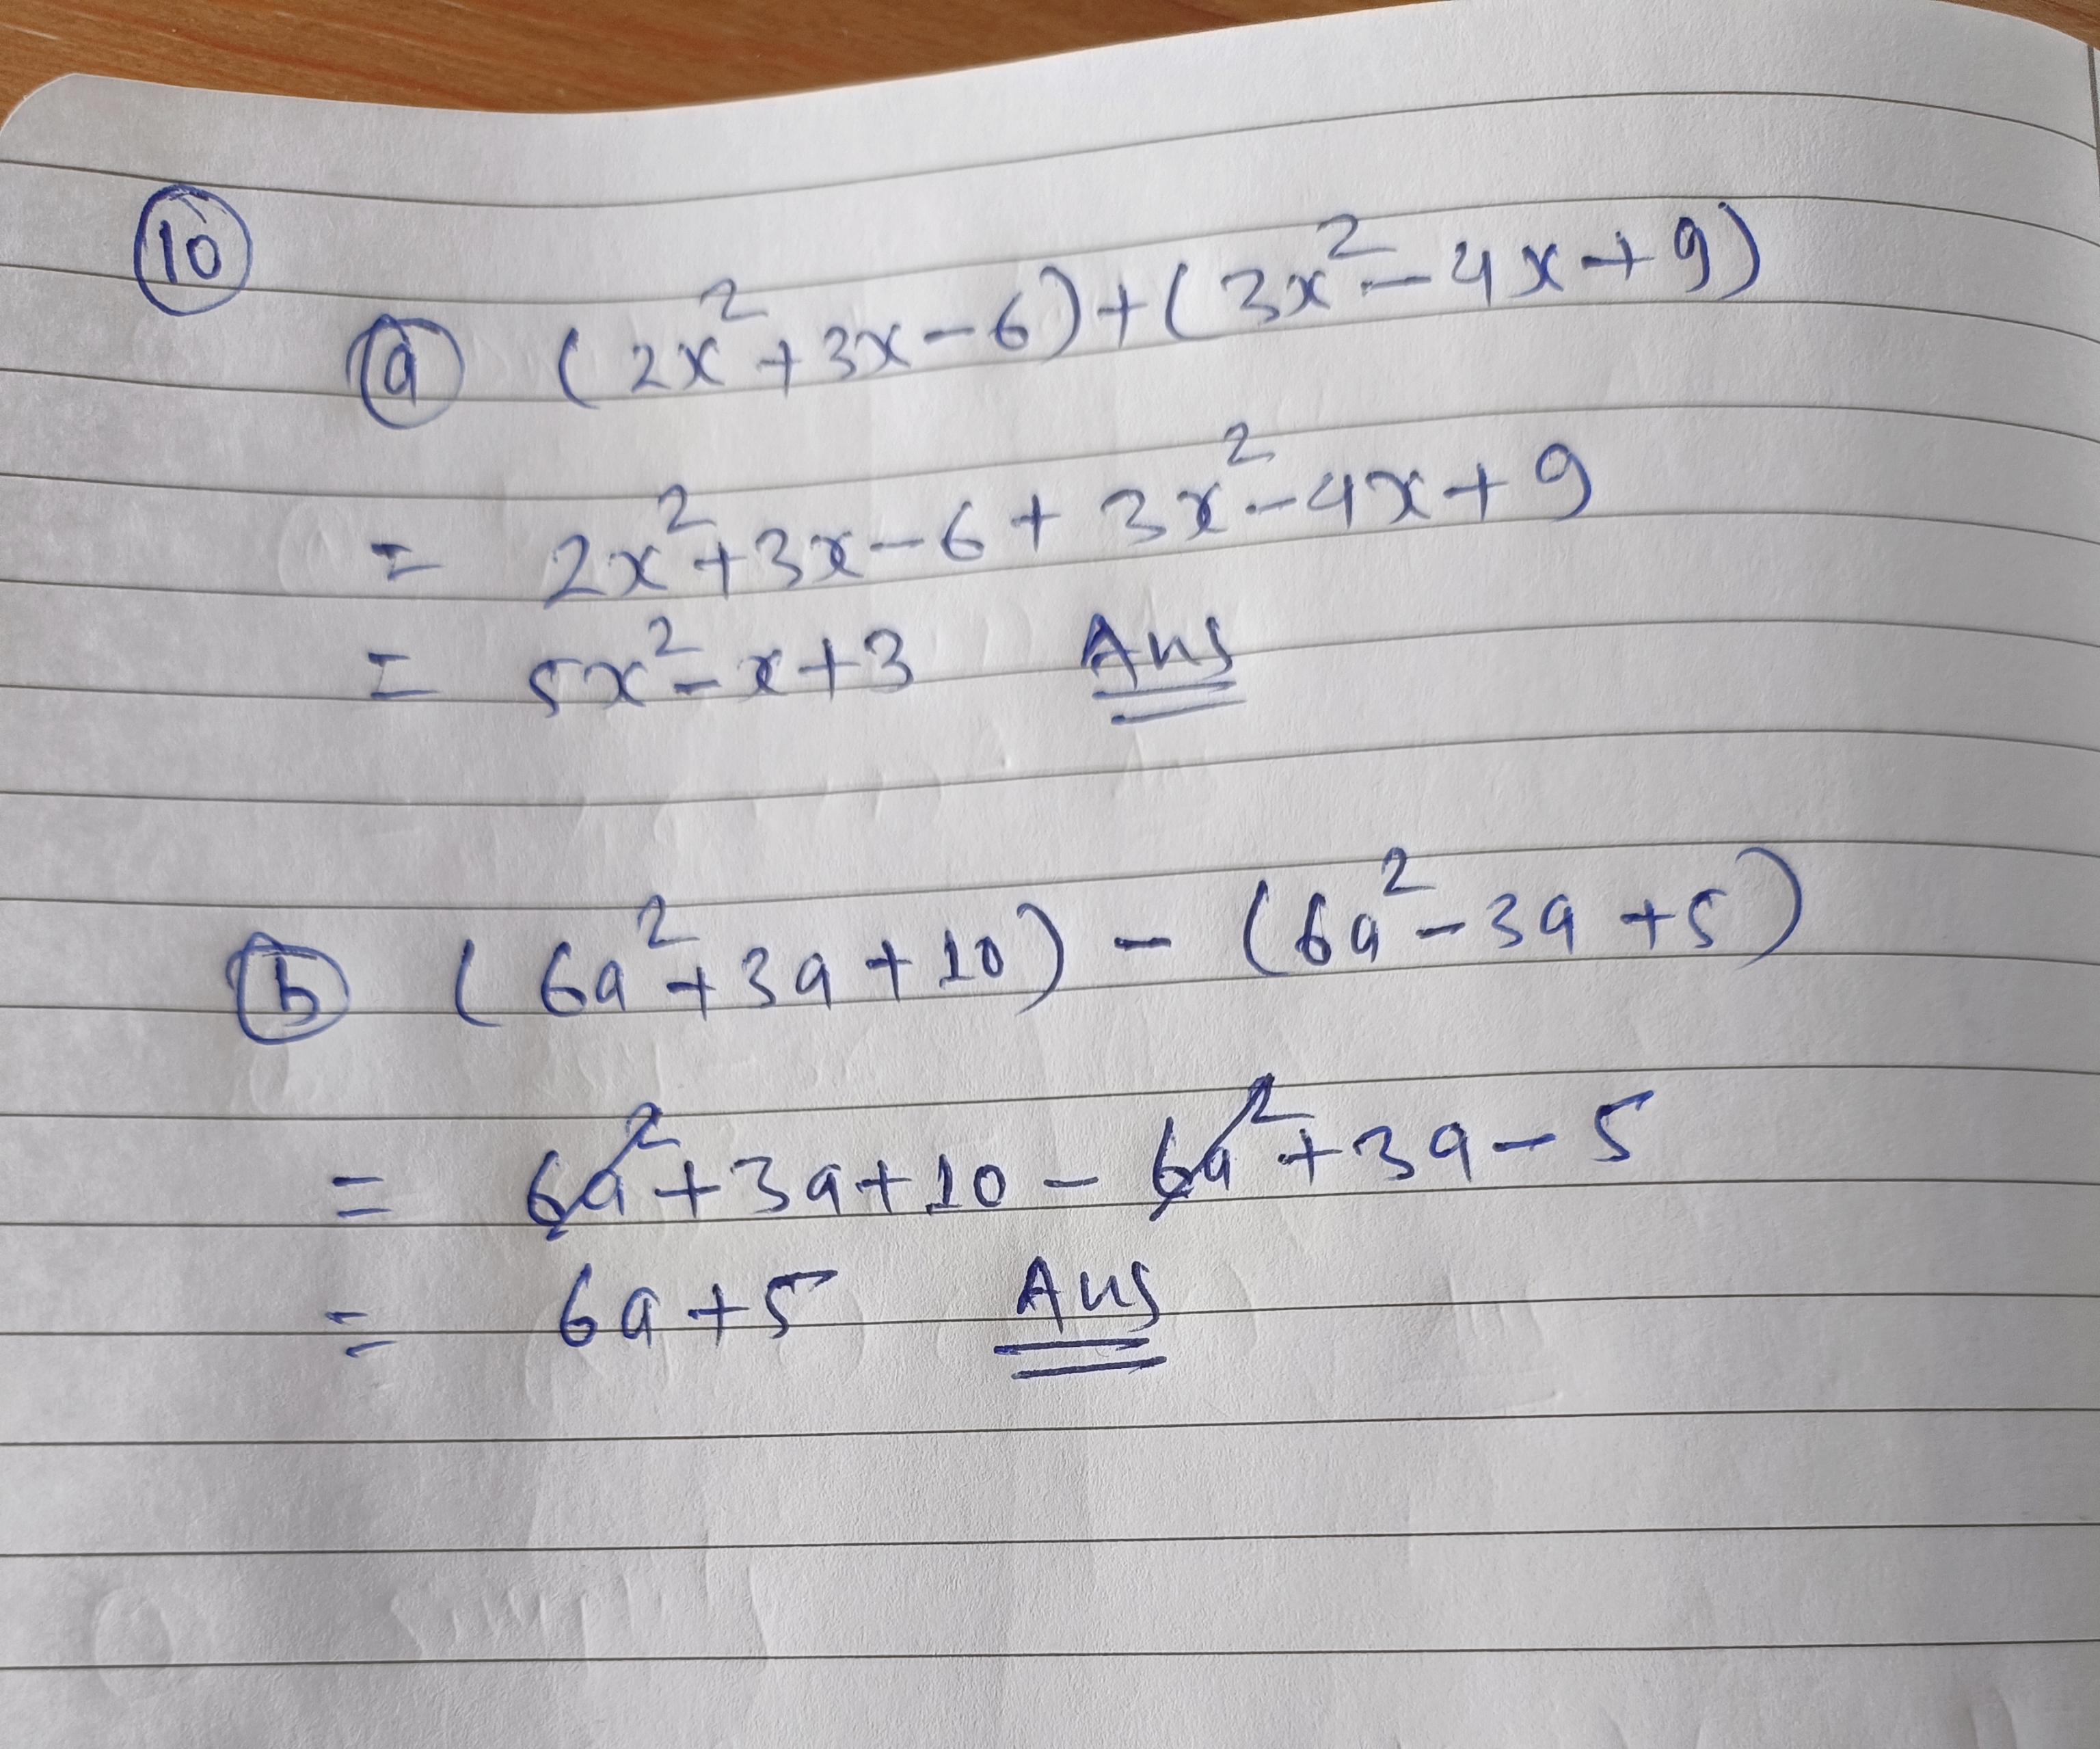 10
a (2x²+3x-6)+(3x²-4x+9)
= 2x²+3x-6+3x²-4x+9
= 5x²-x+3 Ans
b (6a²+3a+10) - (6a²-3a+5)
= 6a²+3a+10-6a²+3a-5
= 6a+5 Ans